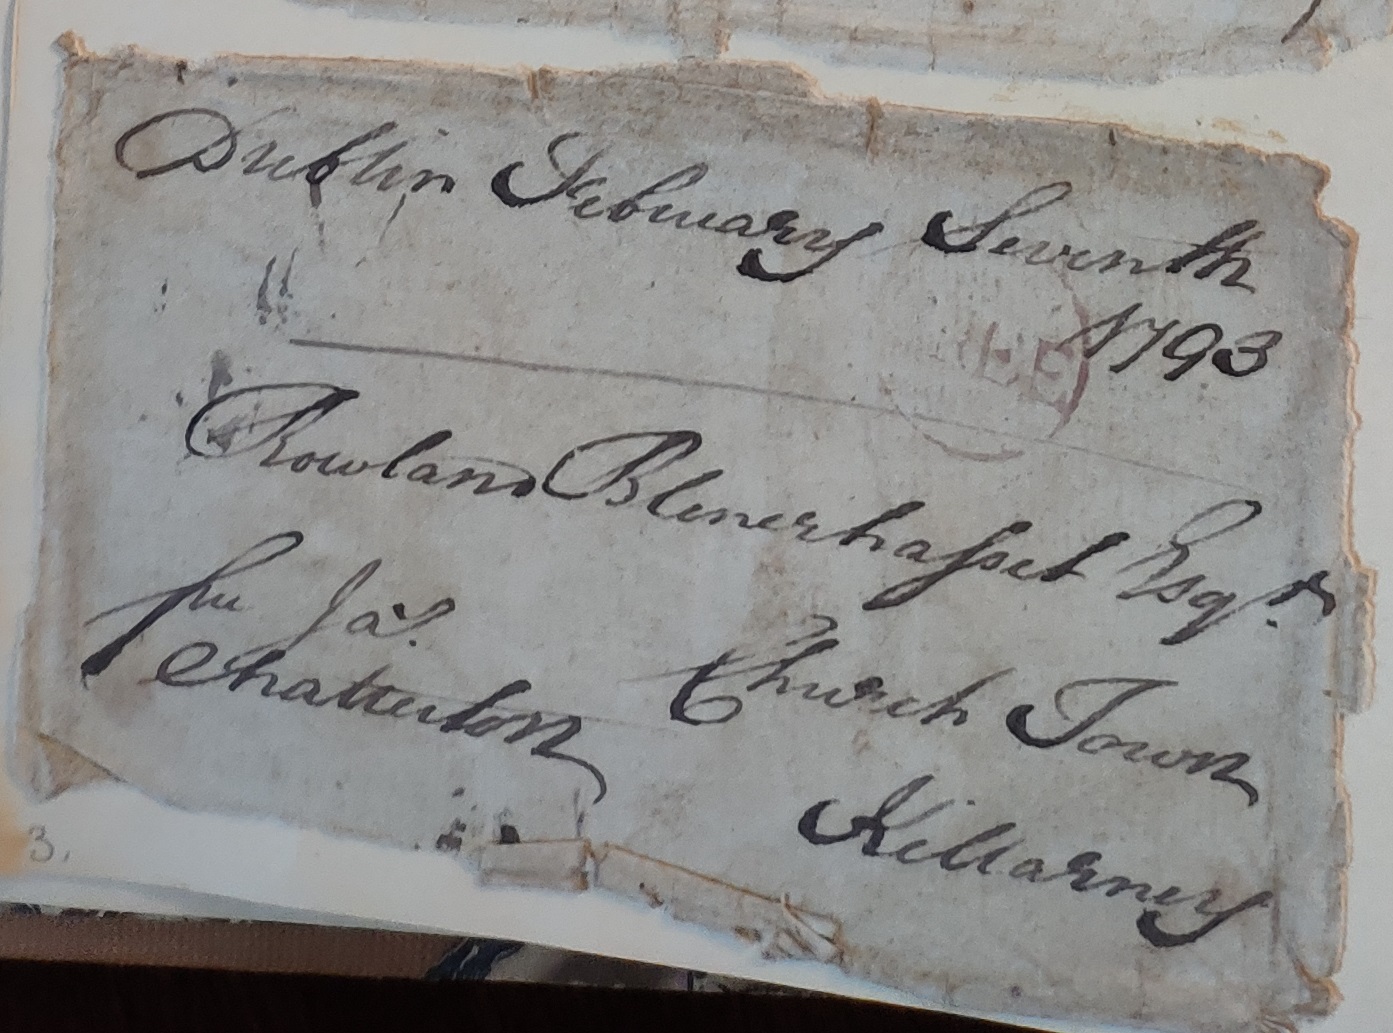 Dublin February Seventh
1793
Rowland Blenerhasset Esqr.
Jas.
Chatterton
Church Town
Killarney
3.